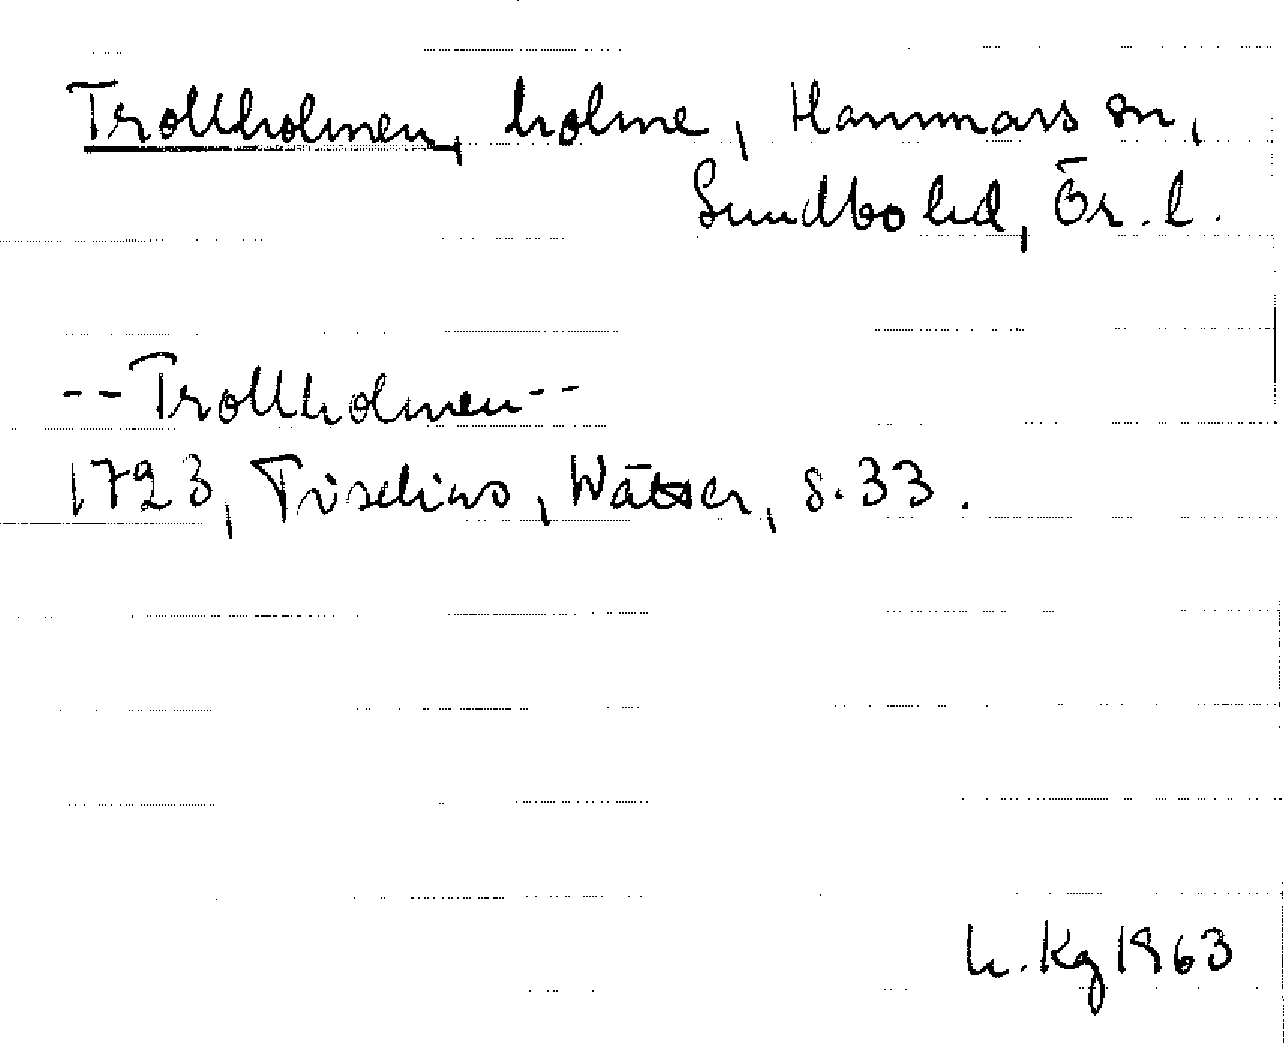 Trollholmen, holme, Hammars sn,
Sundbo hd, Ör. l.
--Trollholmen--
1723, Tiselius, Wätter, s. 33.
L. Kg 1963